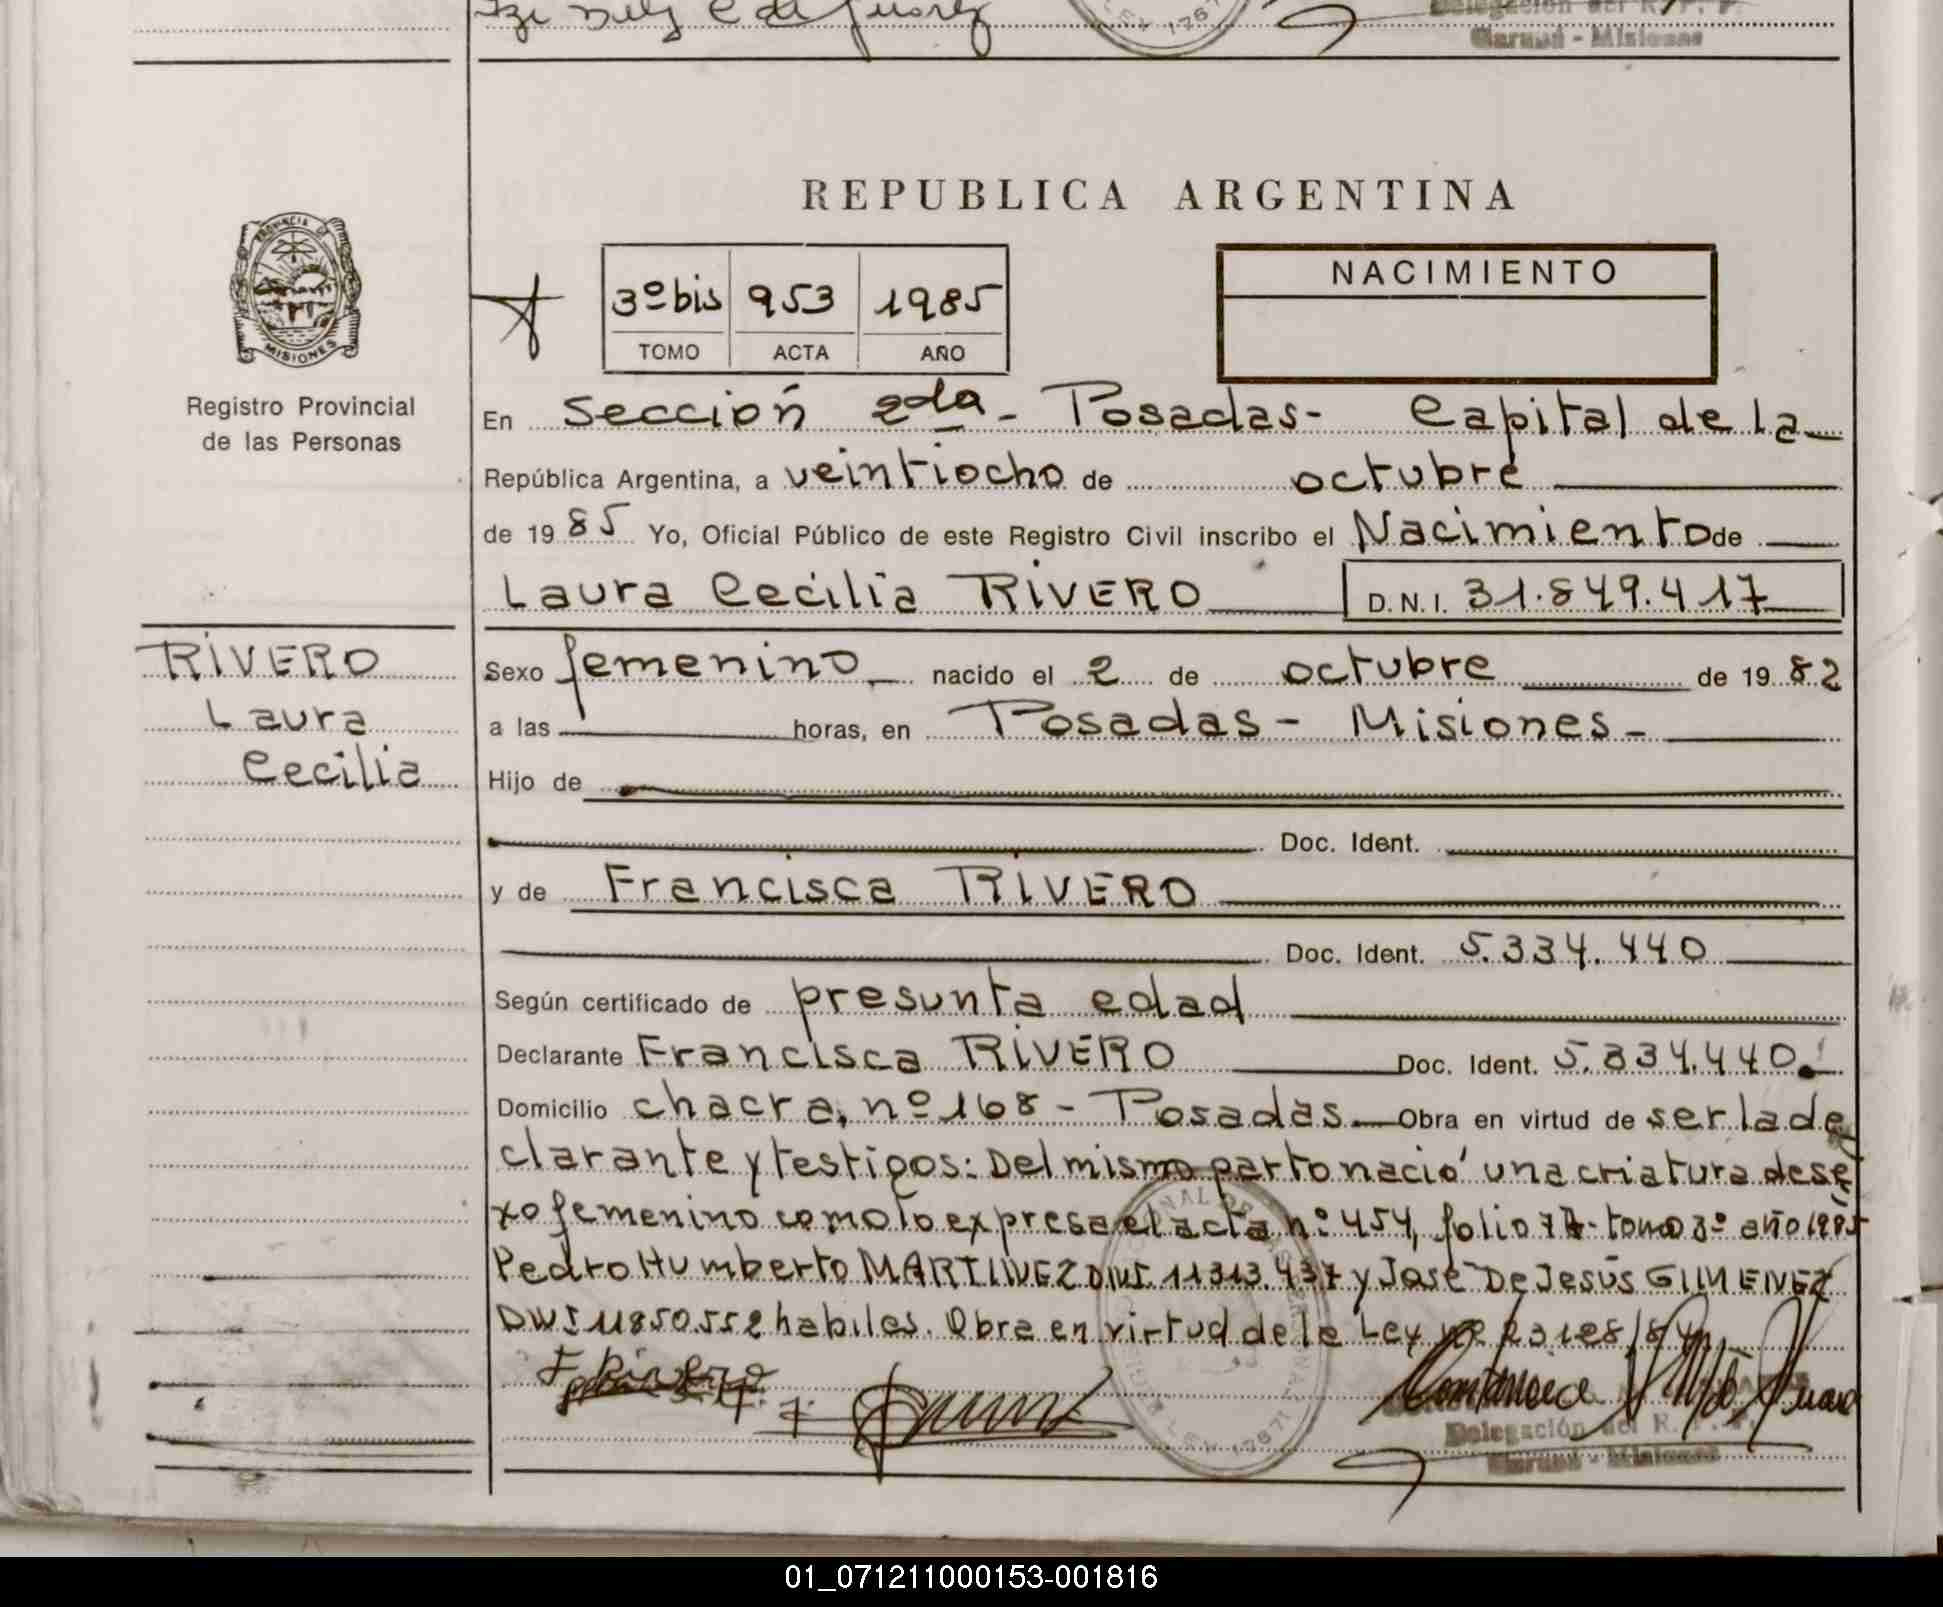 Delegación del R. P. P.
Garupá - Misiones
REPUBLICA ARGENTINA
PROVINCIA DE
MISIONES
Registro Provincial
de las Personas
3º bis 953 1985
TOMO ACTA AÑO
NACIMIENTO
En Sección 2da - Posadas - Capital de la
República Argentina, a veintiocho de octubre
de 1985 Yo, Oficial Público de este Registro Civil inscribo el Nacimiento de
Laura Cecilia RIVERO D.N.I. 31.849.417
RIVERO
Laura
Cecilia
Sexo femenino nacido el 2 de octubre de 1982
a las horas, en Posadas - Misiones -
Hijo de
Doc. Ident.
y de Francisca RIVERO
Doc. Ident. 5.334.440
Según certificado de presunta edad
Declarante Francisca RIVERO Doc. Ident. 5.334.440.
Domicilio chacra, nº 168 - Posadas. Obra en virtud de ser la de
clarante y testigos: Del mismo parto nació una criatura de se
xo femenino como lo expresa el acta nº 454, folio tomo 3º año 1985
Pedro Humberto MARTINEZ DNI. 11313.437 y José De Jesús GIMENEZ
DNI 11850.552 habiles. Obra en virtud de la Ley
F Rivero
Delegación del R. P. P.
Garupá - Misiones
01_071211000153-001816